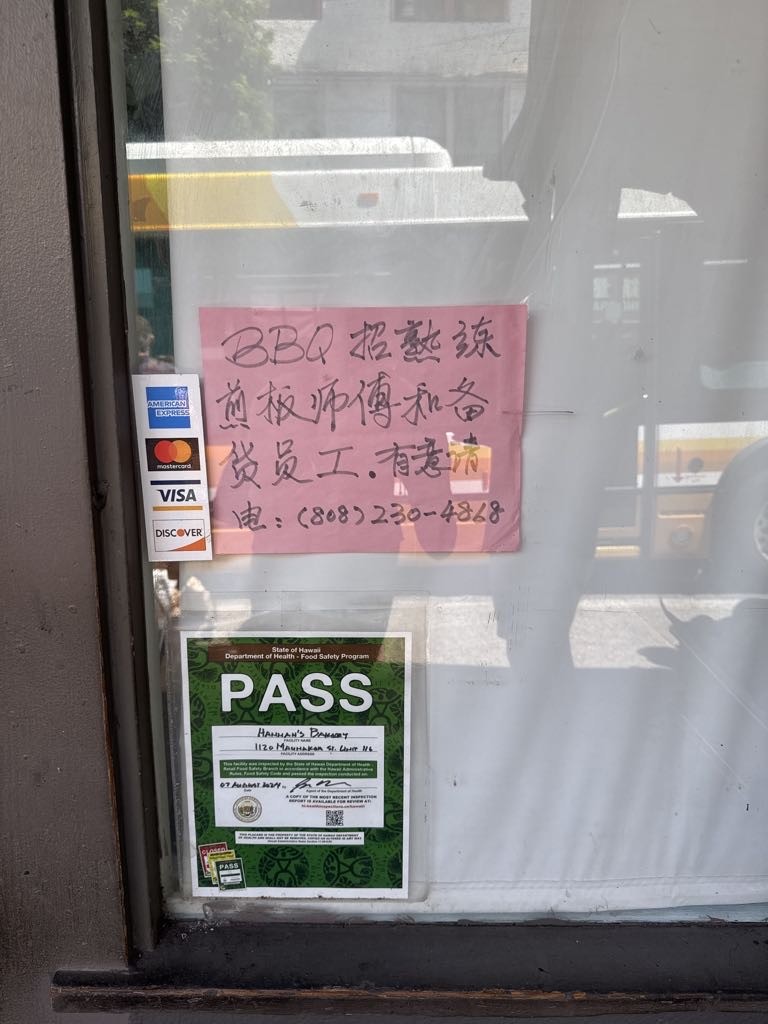 BBQ 招熟练
煎板师傅和备
货员工.有意请
电:(808)230-4868
AMERICAN
EXPRESS
mastercard
VISA
DISCOVER
State of Hawaii
Department of Health - Food Safety Program
PASS
HANNAH'S BAKERY
FACILITY NAME
1120 MAUNAKEA ST. UNIT 116
FACILITY ADDRESS
This facility was inspected by the State of Hawaii Department of Health
Retail Food Safety Branch in accordance with the Hawaii Administrative
Rules, Food Safety Code and passed the inspection conducted on:
07 AUGUST 2024
Date
Agent of the Department of Health
A COPY OF THE MOST RECENT INSPECTION
REPORT IS AVAILABLE FOR REVIEW AT:
THIS PLACARD IS THE PROPERTY OF THE STATE DEPARTMENT
CLOSED
PASS